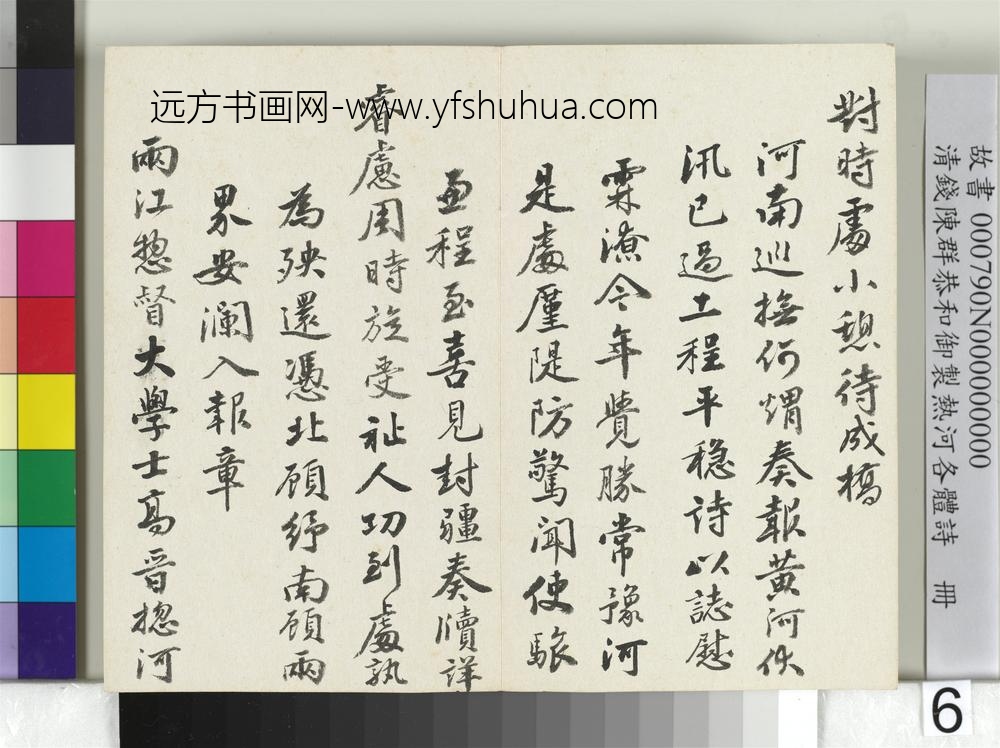 故書 000790N000000000
清錢陳群恭和御製熱河各體詩 冊
對時處小憩待成橋
河南巡撫何煟奏報黃河伏
汛已過工程平穩詩以誌慰
霖潦今年覺勝常豫河
是處厪隄防驚聞使駭
亟程至喜見封疆奏牘詳
睿慮周時旋受祉人功到處孰
為殃還憑北顧紓南顧兩
界安瀾入報章
兩江惣督大學士高晉揔河
远方书画网-www.yfshuhua.com
6